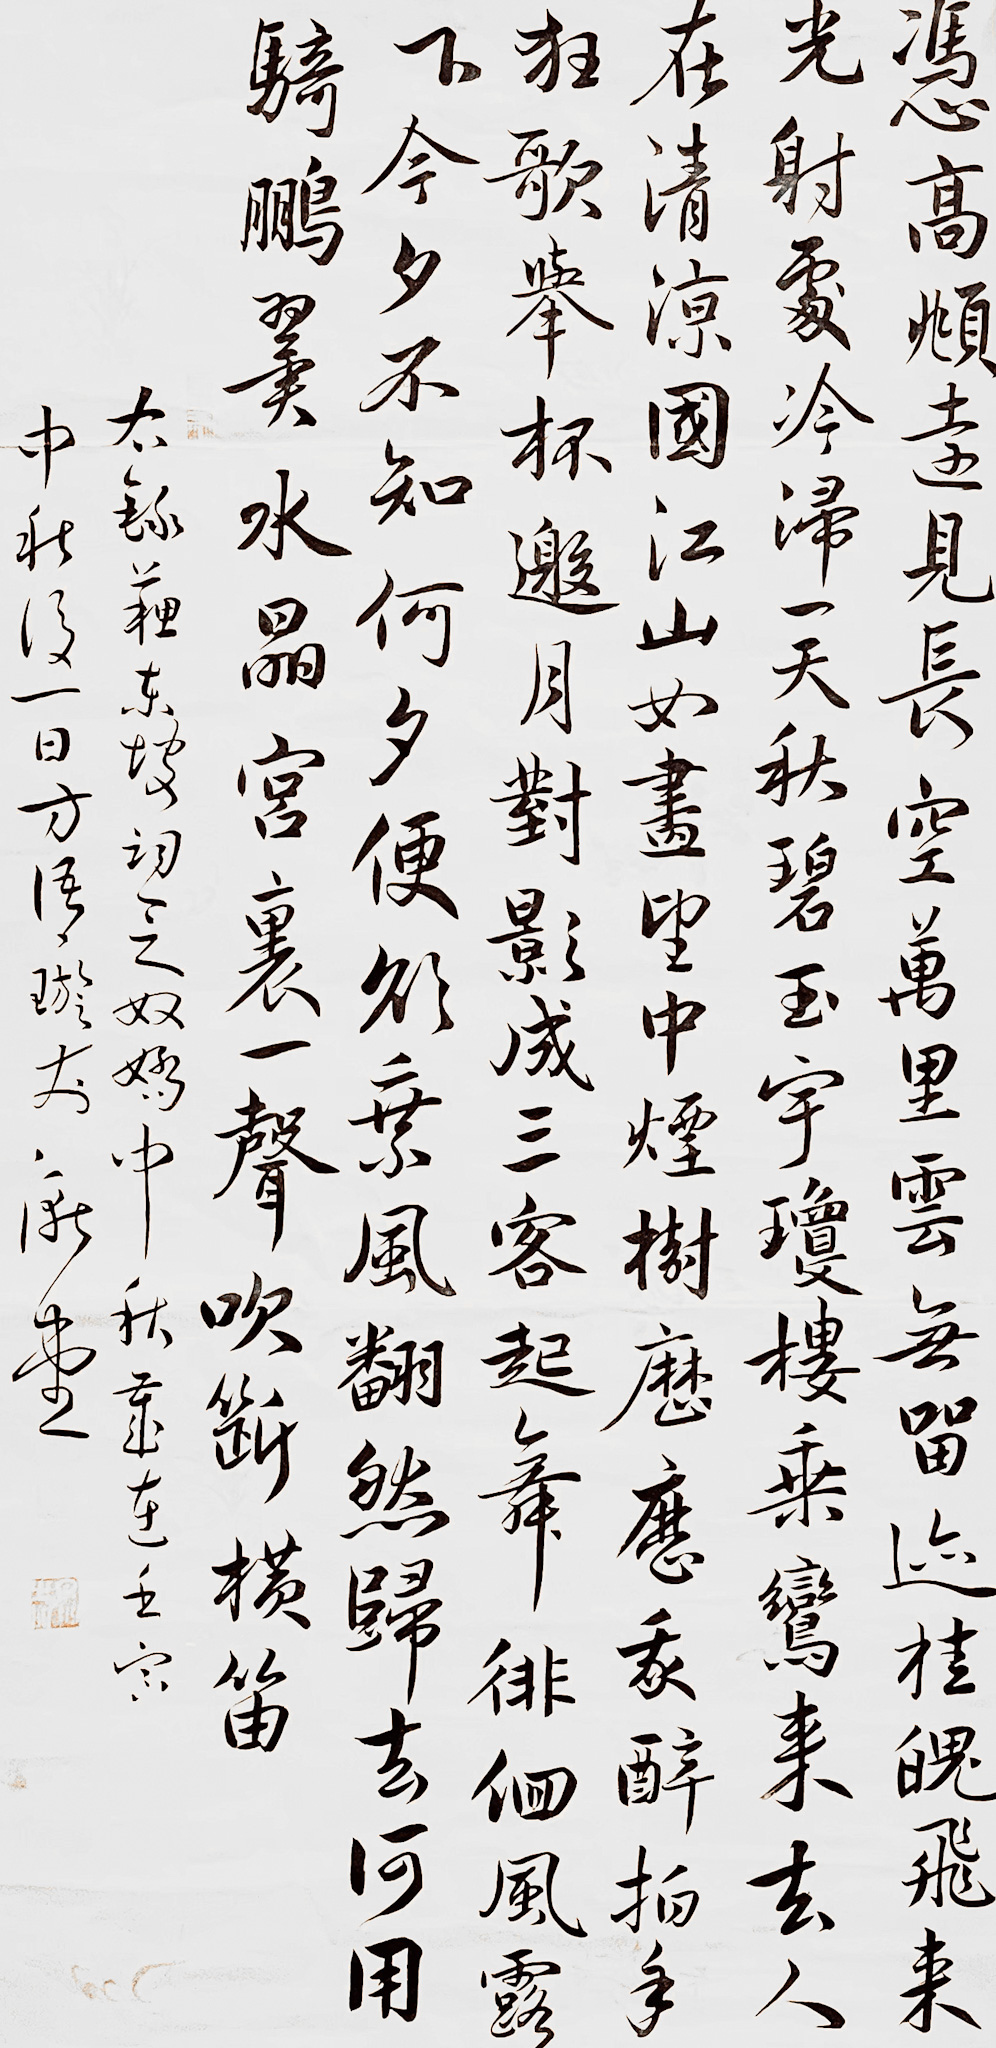 馮高頫遠見長空萬里雲無留迹桂魄飛来
光射處冷浸一天秋碧玉宇瓊樓乗鸞来去人
在清涼國江山如畫望中煙樹歷歷我醉拍手
狂歌舉杯邀月對影成三客起舞徘徊風露
下今夕不知何夕便欲乗風翻然歸去何用
騎鵬翼水晶宮裏一聲吹斷橫笛
右錄蘇東坡詞念奴嬌中秋歲在壬寅
中秋後一日方